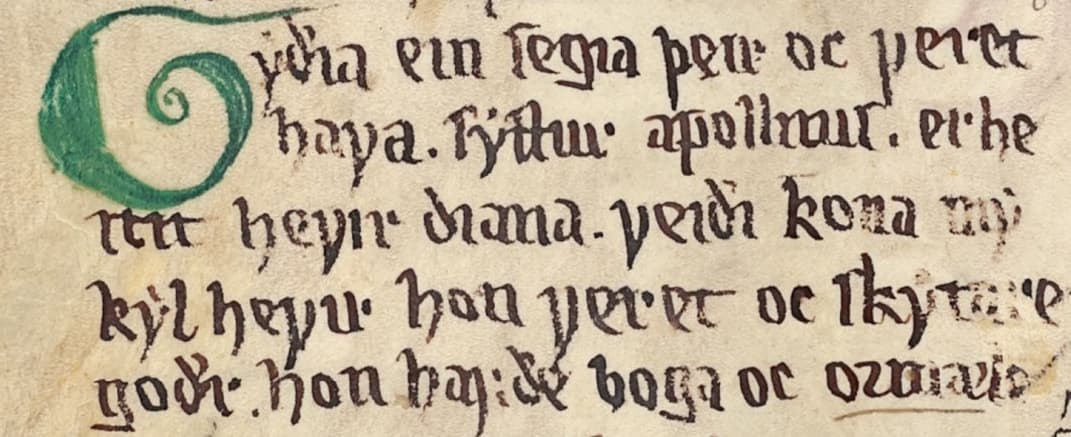 Gyðia ein segia þeir oc veret
hafa. systur apollinis. er he
itit hefir diana. veiði kona my
kyl hefir hon veret oc skytare
goðr. hon hafðe boga oc